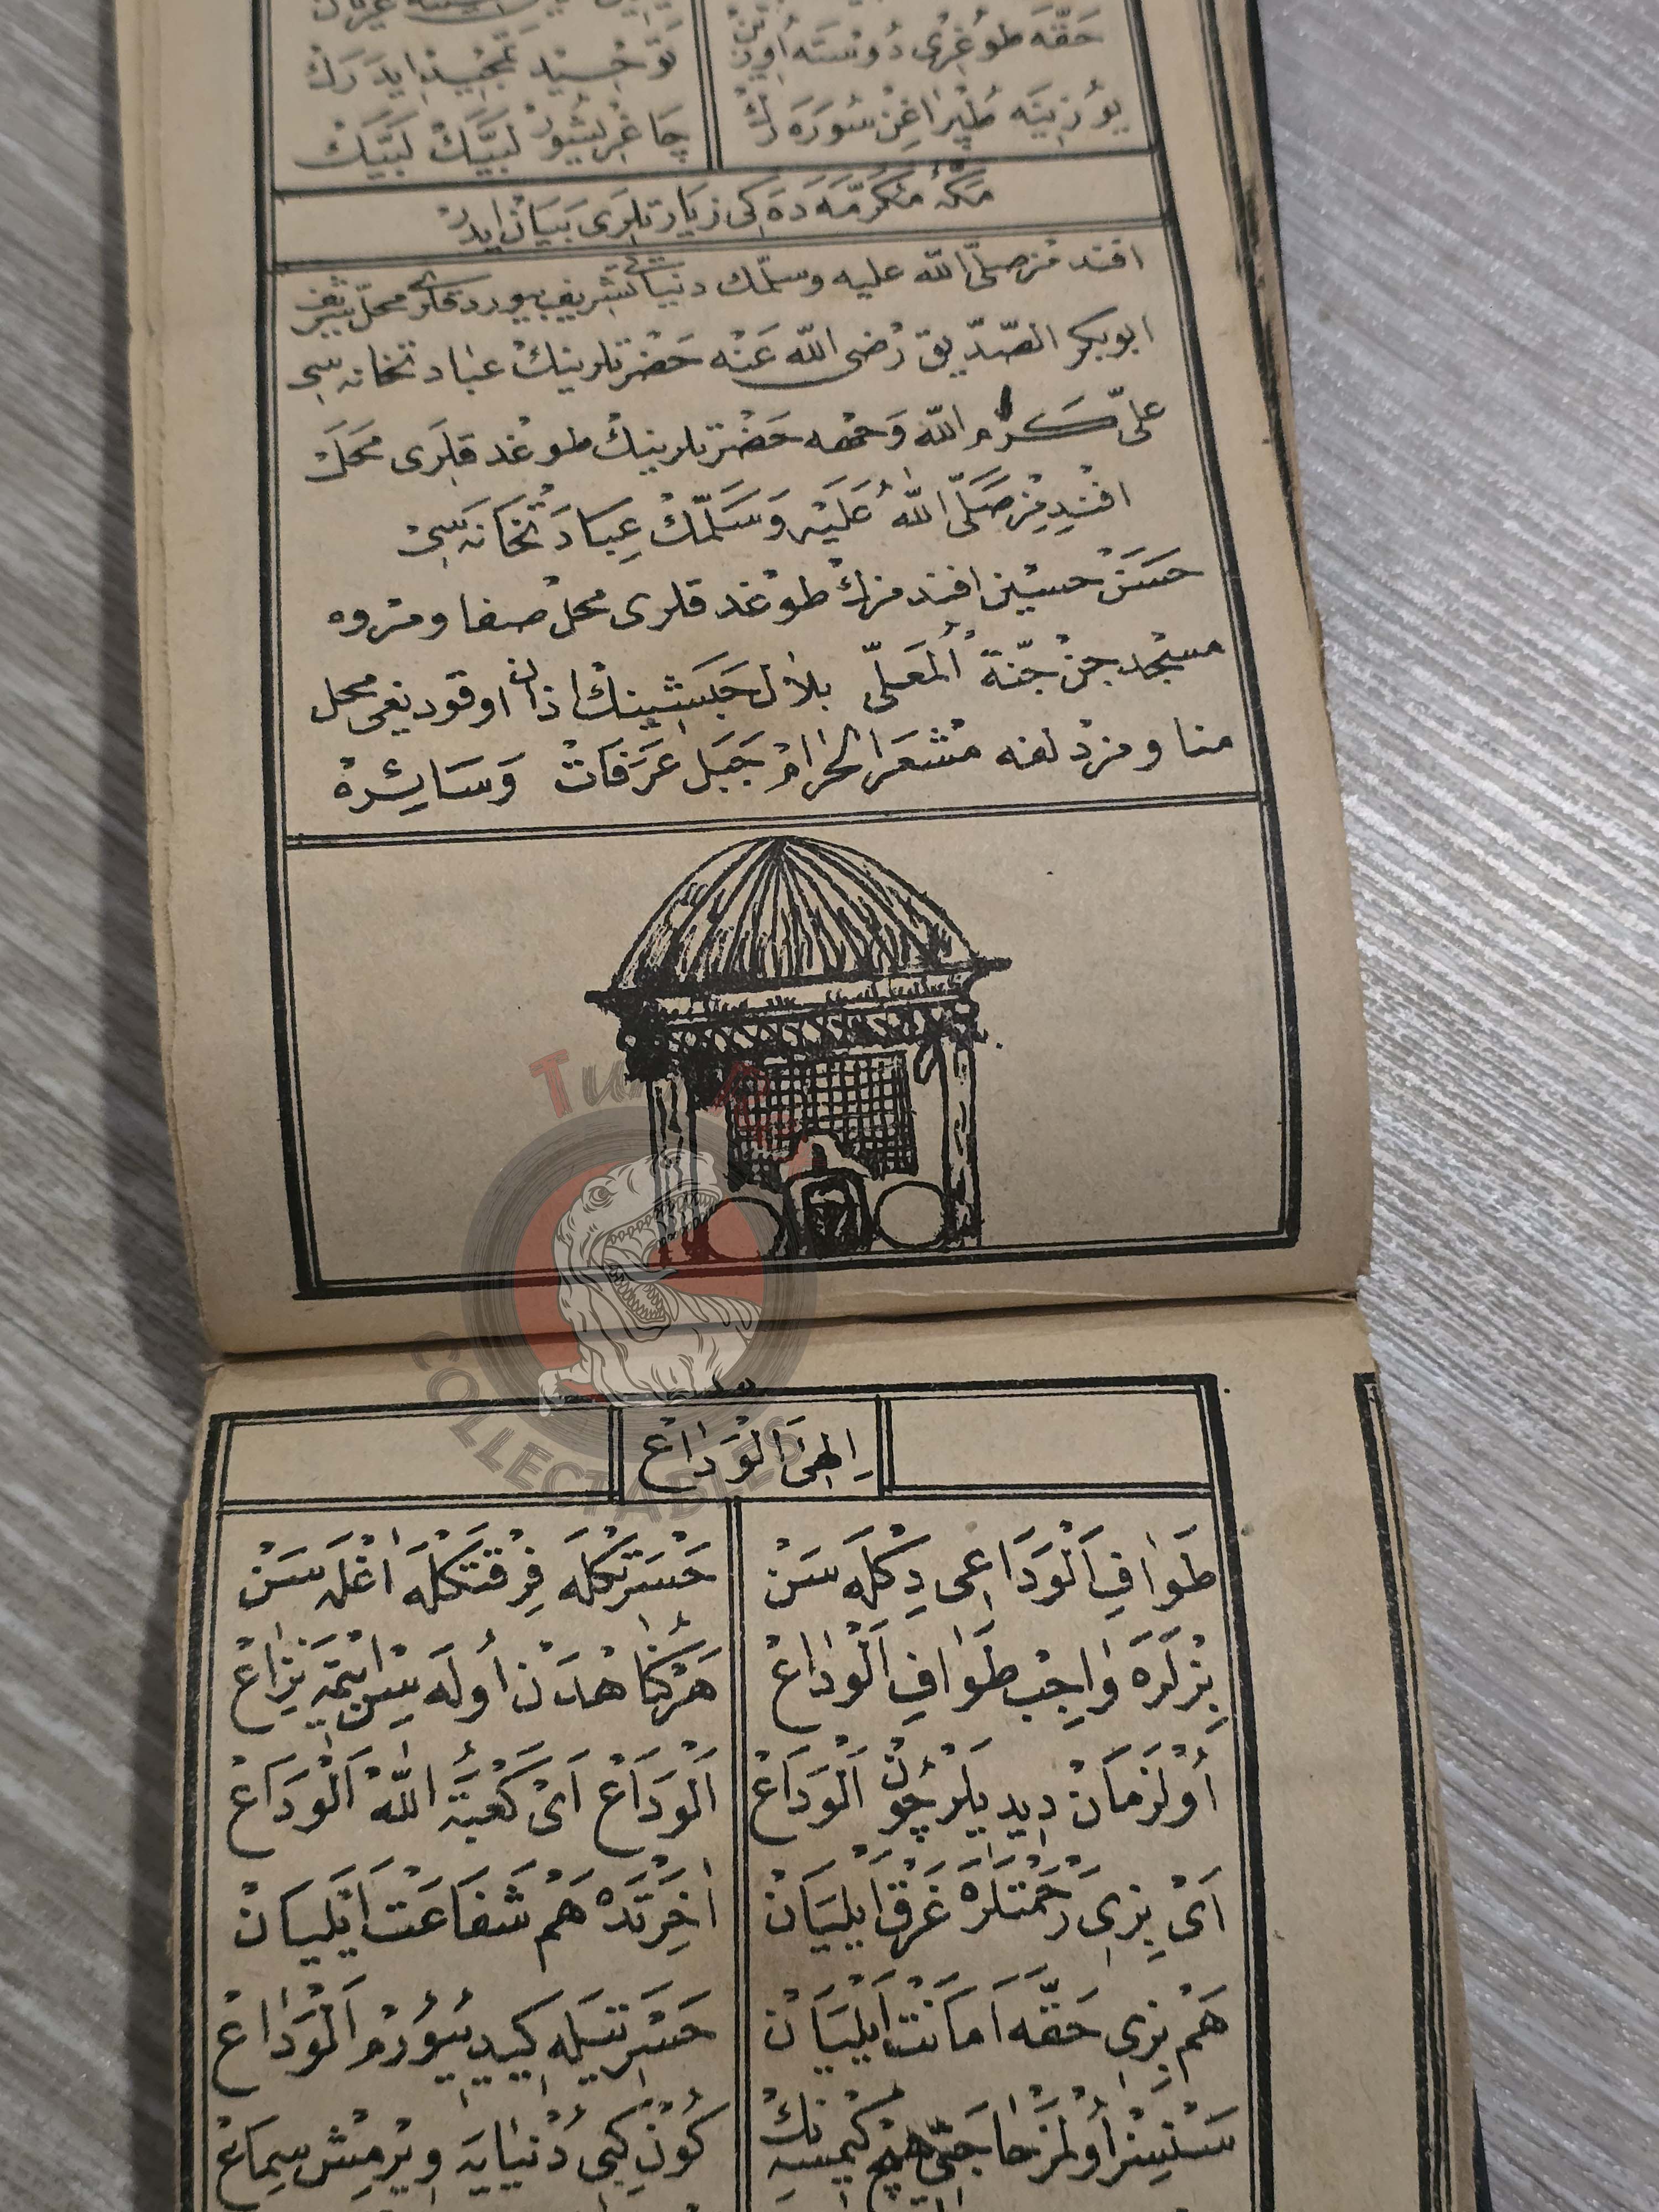 حَقَّه طوُغْرِى دُوسْتَه
تَوْحِيدْ تَمْجِيدْ اِيدَرَكْ
يُوزينَه طُپْرَاغِنْ سُورَه رَكْ
چَاغْرِيشُورْ لَبَّيْكْ لَبَّيْكْ
مَكَّهٔ مُكَرَّمَه دَه كِى زِيَارتلرى بَيَانْ ايدر
افندمز صلّى الله عليه وسلّمك دنيايى تشريف بيوردقلرى محلّ شريف
ابوبكر الصّديق رضى الله عَنْه حَضْرتلرينك عبادتخانه سى
علىّ كرّم الله وَجهه حَضْرتلرينك طوغدقلرى محَلْ
افندِمِزْ صَلَّى اللّٰهُ عَلَيْهِ وَسَلَّمْكْ عِبَادَتْخَانَه سِى
حَسَنْ حسيْن افندمزكْ طوْغدقلرى محلْ صفا ومروه
مسْجد جنْ جَنّةُ الْمَعلّى بلاٰل حَبَشِينكْ اذان اوقوديغى محل
منا ومزْدلفه مَشْعَرَالْحَرَامْ جَبَلِ عَرَفَاتْ وَسَائِرهْ
اِلٰهِىَ الْوَدَاعْ
طَوَافِ اَلْوَدَاعِى دِكْلَه سَنْ
حَسْرَتْكلَه فِرْقَتْكلَه اغْلَه سَنْ
بِزْلَرَه وٰاجِبْ طَوَافِ اَلْوَدَاعْ
هَرْ كُنَاهْدَنْ اُولَه سِنْ ايْتمَه نِزَاعْ
اُولْ زَمَانْ دِيديلَرْ چُونْ اَلْوَدَاعْ
اَلْوَدَاعْ اَىْ كَعْبَةُ اللّٰهْ اَلْوَدَاعْ
اَىْ بِزِى رَحْمَتلَرَه غَرْق ايْلَيَانْ
اٰخِرَتْدَه هَمْ شَفَاعَتْ ايْلَيانْ
هَمْ بِزى حَقَّه اَمَانَتْ ايْلَيَانْ
حَسْرَتيلَه كيديُيورُم الْوَدَاعْ
سَنْسِزْ اُولْمَزْ حَاجَتِى هِيچْ كِيمْسَه نِكْ
كُونْ كِبِى دُنْيَايَه وِيرْمِشْ سِمَاعْ